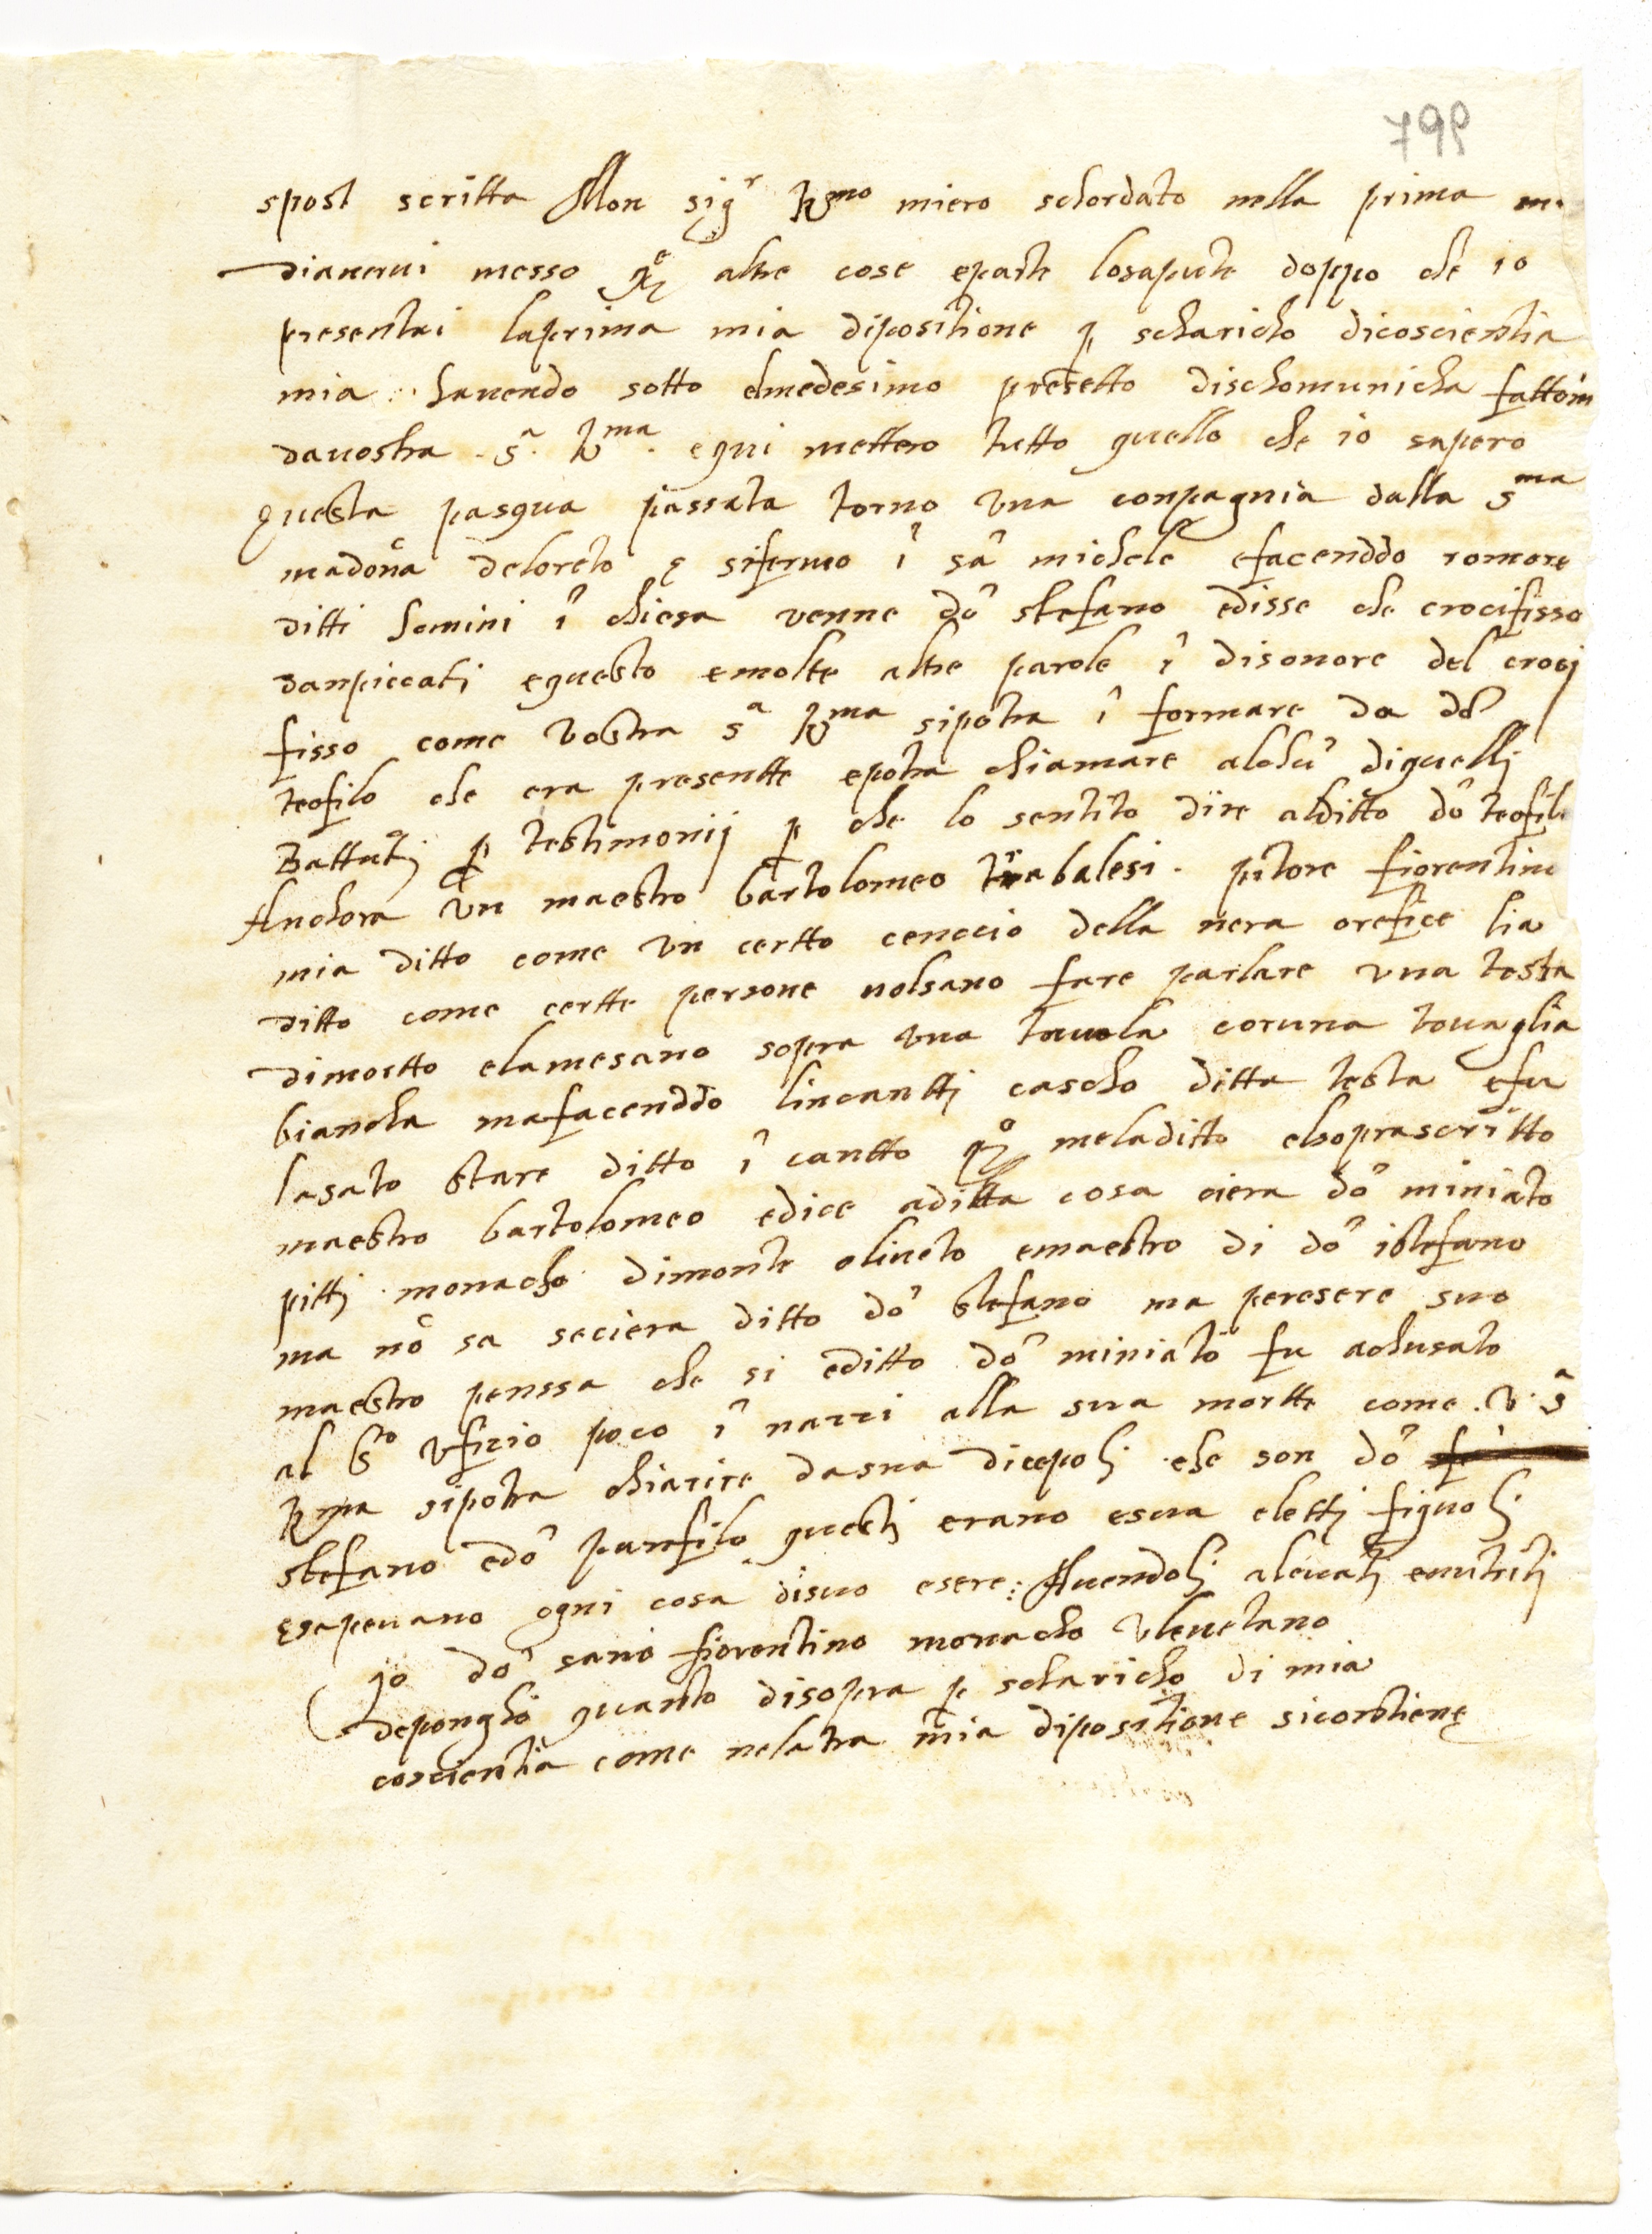 799
spost scritta Mon sigr Rmo miero schordato nella prima mi
dianervi messo qe altre cose eparte losapute doppo che io
presentai laprima mia dipositione p scharicho dicoscientia
mia havendo sotto elmedesimo presetto dischomunicha fattomi
davostra .sa. Rma. equi mettero tutto quello che io sapero
questa pasqua passata torno una conpagnia dalla sma
madona deloreto e sifermo î sâ michele efacenddo romore
ditti homini î chiesa venne dô stefano edisse che crocifisso
danpiccati equesto emolte altre parole î disonore del croci
fisso come vostra sa Rma sipotra î formare da dô
teofilo che era presentte epotra chiamare alchû diquelli
Battutj p testimonij p che lo sentito dire alditto dô teofilo
Anchora un maestro bartolomeo trabalesi . pitore fiorentino
mia ditto come un certto cenccio della nera orefice lia
ditto come certte persone volsano fare parlare una testa
dimortto elamesano sopra una tavola coruna tovaglia
biancha mafacenddo lincanttj cascho ditta testa efu
lasato stare ditto î cantto qo meladitto elsoprascritto
maestro bartolomeo edice aditta cosa ciera dô miniato
pittj monacho dimonte oliveto emaestro di dô istefano
ma nô sa seciera ditto dô stefano ma peresere suo
maestro penssa che si editto dô miniato fu achusato
al sto ufizio poco î nanzi alla sua mortte come .v. sa
Rma sipotra chiarire dasua dicepoli che son dô
stefano edô panfilo questj erano esua elettj figuoli
esapevano ogni cosa disuo esere: Avendoli alevatj enutritj
io dô sano fiorentino monacho ulevetano
depongho quanto disopra p scharicho di mia
coscientia come nelatra mia dipositione sicontiene